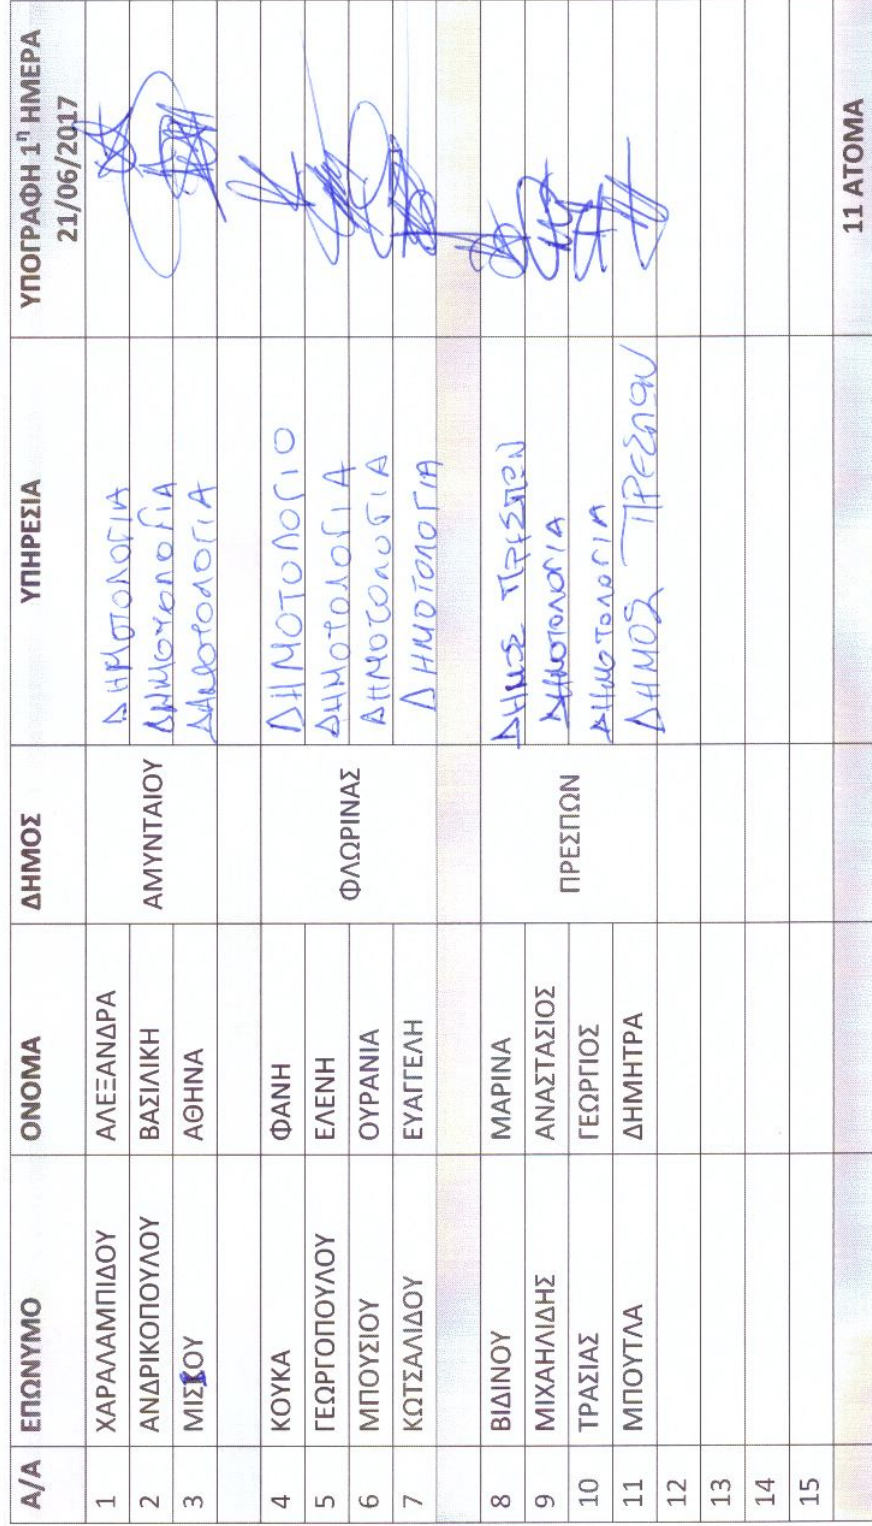 Α/Α ΕΠΩΝΥΜΟ ΟΝΟΜΑ ΔΗΜΟΣ ΥΠΗΡΕΣΙΑ ΥΠΟΓΡΑΦΗ 1η ΗΜΕΡΑ 21/06/2017
1 ΧΑΡΑΛΑΜΠΙΔΟΥ ΑΛΕΞΑΝΔΡΑ ΔΗΜΟΤΟΛΟΓΙΑ
2 ΑΝΔΡΙΚΟΠΟΥΛΟΥ ΒΑΣΙΛΙΚΗ ΑΜΥΝΤΑΙΟΥ ΔΗΜΟΤΟΛΟΓΙΑ
3 ΑΘΗΝΑ ΔΗΜΟΤΟΛΟΓΙΑ
4 ΚΟΥΚΑ ΦΑΝΗ ΔΗΜΟΤΟΛΟΓΙΟ
5 ΓΕΩΡΓΟΠΟΥΛΟΥ ΕΛΕΝΗ ΦΛΩΡΙΝΑΣ ΔΗΜΟΤΟΛΟΓΙΑ
6 ΜΠΟΥΣΙΟΥ ΟΥΡΑΝΙΑ ΔΗΜΟΤΟΛΟΓΙΑ
7 ΚΩΤΣΑΛΙΔΟΥ ΕΥΑΓΓΕΛΗ ΔΗΜΟΤΟΛΟΓΙΑ
8 ΒΙΔΙΝΟΥ ΜΑΡΙΝΑ ΔΗΜΟΣ ΠΡΕΣΠΩΝ
9 ΜΙΧΑΗΛΙΔΗΣ ΑΝΑΣΤΑΣΙΟΣ ΠΡΕΣΠΩΝ ΔΗΜΟΤΟΛΟΓΙΑ
10 ΤΡΑΣΙΑΣ ΓΕΩΡΓΙΟΣ ΔΗΜΟΤΟΛΟΓΙΑ
11 ΜΠΟΥΤΛΑ ΔΗΜΗΤΡΑ ΔΗΜΟΣ ΠΡΕΣΠΩΝ
12
13
14
15
11 ΑΤΟΜΑ